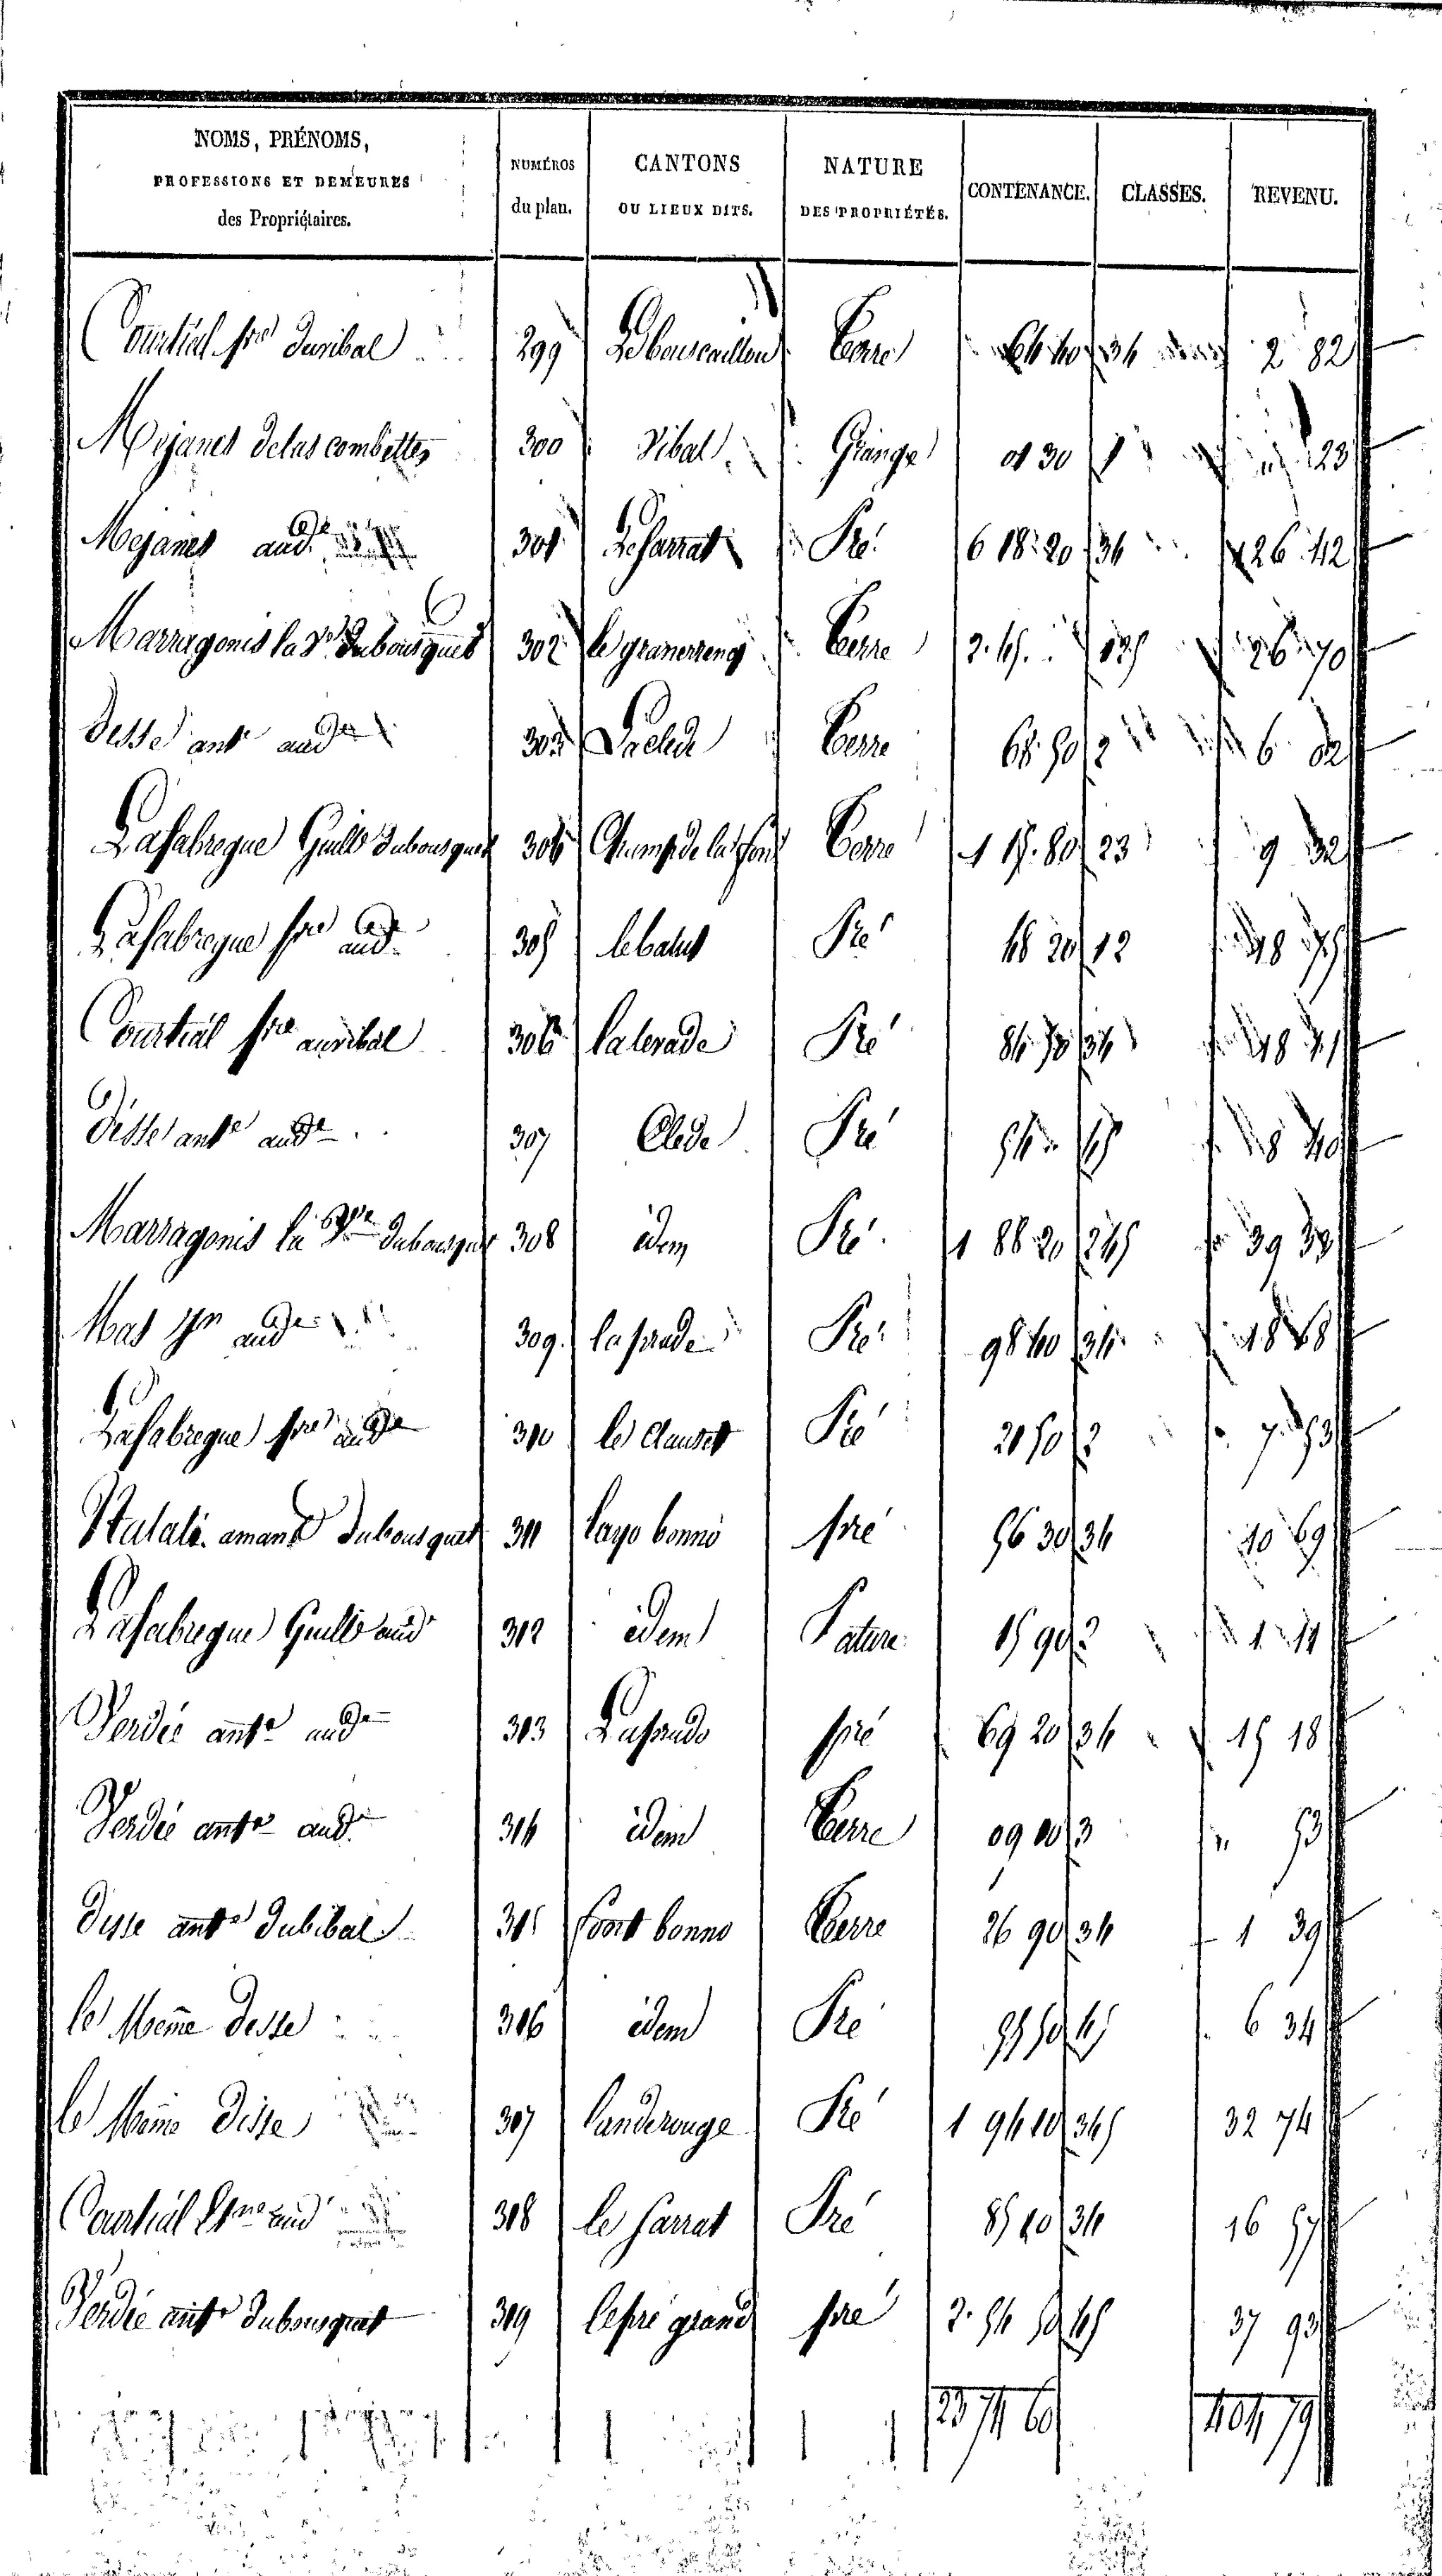 NOMS, PRÉNOMS, PROFESSIONS ET DEMEURES des Propriétaires. | NUMÉROS du plan. | CANTONS OU LIEUX DITS. | NATURE DES PROPRIÉTÉS. | CONTENANCE. | CLASSES. | REVENU.
Courtial fre Duvibal | 299 | Le bouscaillou | Terre | 64 40 | 34 | 2 82
Mejanes delas combettes | 300 | Vibal | Grange | 01 30 | 1 | 23
Mejanes aud. | 301 | Le sarrat | Pré | 6 18 20 | 34 | 126 42
Marragonis la Ve Dubousquet | 302 | Terre | 2 45 | 26 70
Desse ante aud | 303 | La clede | Terre | 68 50 | 2 | 6 02
Lafabregue Guille Dubousquet | 304 | Champ de la font | Terre | 1 15 80 | 23 | 9 32
Lafabregue fre aud. | 305 | le balut | Pré | 48 20 | 12 | 18 75
Courtial fre auvibal | 306 | la levade | Pré | 34 | 18
Desse ante aud | 307 | Clede | Pré | 54 | 45 | 8 40
Marragonis la Ve Dubousquet | 308 | idem | Pré | 1 88 20 | 245 | 39
Mas aud | 309 | la prade | Pré | 98 40 | 34 | 18
Lafabregue fre aud | 310 | le Clauset | Pré | 21 50 | 2 | 7 53
Natalis amans dubousquet | 311 | pré | 56 30 | 34 | 10 69
Lafabregue Guille aud | 312 | idem | Pature | 15 90 | 2 | 1 11
Verdié ante aud | 313 | La prado | pré | 69 20 | 34 | 15 18
Verdié ante aud. | 314 | idem | Terre | 09 00 | 3 | " 53
Desse ante Dubibal | 315 | font bonno | Terre | 26 90 | 34 | 1 39
le Même Desse | 316 | idem | Pré | 45 | 6 34
le Même Desse | 317 | landerouge | Pré | 1 94 10 | 345 | 32 74
Courtial aud | 318 | le Sarrat | Pré | 85 10 | 34 | 16 57
Verdié ante dubousquet | 319 | le pré grand | pré | 2 54 50 | 45 | 37 93
23 74 60 | 404 79